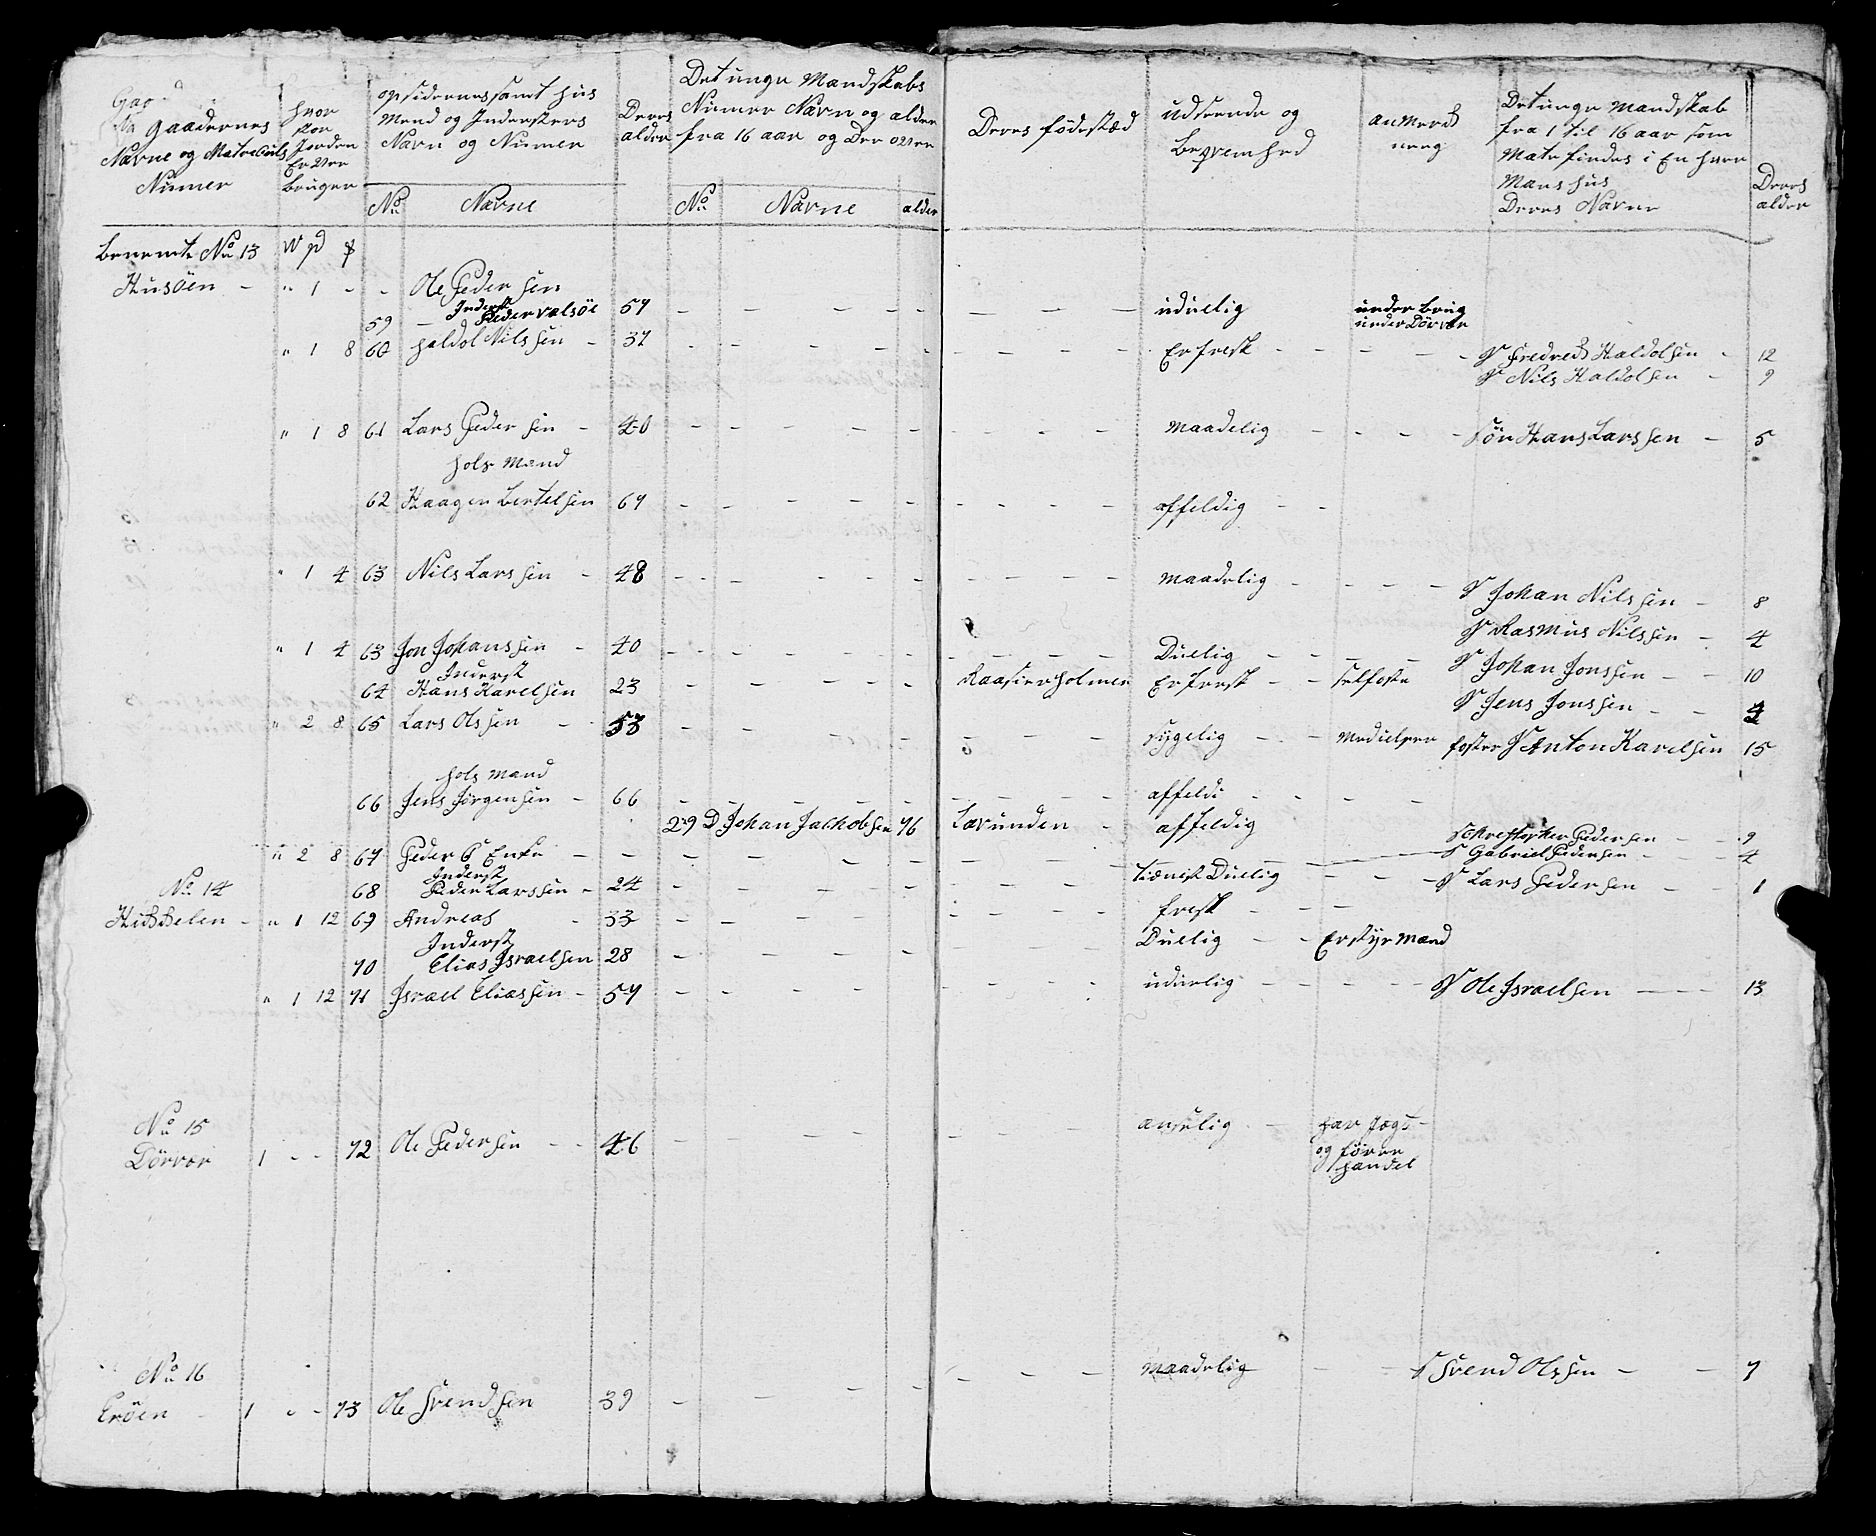 gaadernes
Navne og Matreculs
Numer
hvor
stor
Jorden
Er Ver
bruger
opsidernes samt hus
Mend og Indersters
Navn og Numer
Deres
alder
Det unge Mandskabs
Numer Navn og alder
fra 16 aar og Der over
Deres födested
udseende og
Beqvemhed
anmerck
ning
Det unge Mandskab
fra 1 til 16 aar som
Mate findes i En hver
Mans hus
Deres Navne
Deres
alder
No Navne No Navne alder
benemte No 13 W p
Husöen - " 1 - - Ole Pedersen
59 Inderst Peder valsöe 57 - uduelig under brug under Dörvær
" 1 8 60 Haldol Nilssen - 37 - Er fresk - S Fredreck Haldolsen - 12
S Nils Haldolsen - 9
" 1 8 61 Lars Pedersen - 40 - maadelig - Sön Hans Larssen - 5
hols Mand
62 Haagen Bertelsen 67 - affeldig - -
" 1 4 63 Nils Larssen - 48 - maadelig - S Johan Nilssen - 8
S Rasmus Nilssen - 4
" 1 4 63 Jon Johanssen - 40 - Duelig - S Johan Jonssen - - 10
Inderst
64 Hans Karelsen 23 - Raasierholmen Er fresk - - selfoste
S Jens Jonssen - - 4
" 2 8 65 Lars Olssen - 53 - sygelig - - Medielper foster S Anton Karelsen 15
hols mand
66 Jens Jörgensen - 66 - affeldi -
29 D Johan Jachobsen 76 Lovunden - affeldig
S Chrestopher Pedersen - 9
" 2 8 67 Peder P Enke - S Gabriel Pedersen - 4
Inderst
68 Peder Larssen - 24 - tienist Duelig - S Lars Pedersen - - 1
No 14
Hiskelen - " 1 12 69 Andreas - 33 - fresk - - -
Inderst
70 Elias Israelsen 28 - Duelig - - Er styrmand
" 1 12 71 Israel Eliassen - 57 - uduelig - S Ole Israelsen - 13
No 15
Dörvær 1 - - 72 Ole Pedersen - - 46 - anselig - har Jægt
og förer
handel
No 16
1 - - 73 Ole Svendsen 39 - maadelig - S Svend Olssen - - 7